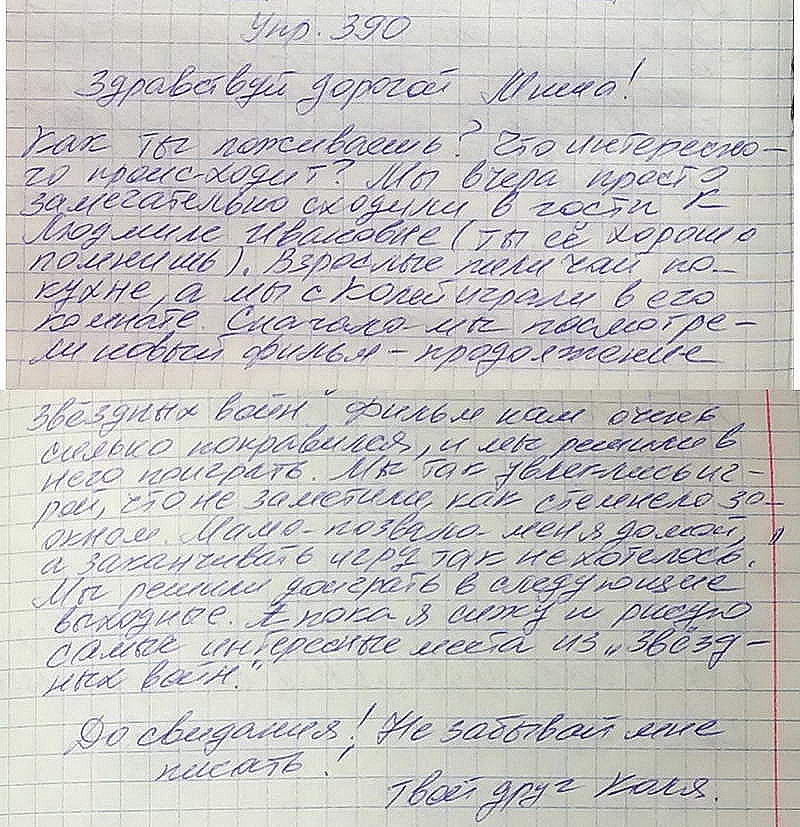 Упр. 390
Здравствуй дорогой Миша!
Как ты поживаешь? Что интересно-
го происходит? Мы вчера просто
замечательно сходили в гости к
Людмиле Ивановне (ты её хорошо
помнишь). Взрослые пили чай на
кухне, а мы с Колей играли в его
комнате. Сначала мы посмотре-
ли новый фильм - продолжение
Звёздных войн" Фильм нам очень
сильно понравился, и мы решили в
него поиграть. Мы так увлеклись иг-
рой, что не заметили, как стемнело за
окном. Мама позвала меня домой,
а заканчивать игру так не хотелось.
Мы решили доиграть в следующие
выходные. А пока я сижу и рисую
самые интересные места из „Звёзд-
ных войн."
До свидания! Не забывай мне
писать!
Твой друг Коля.